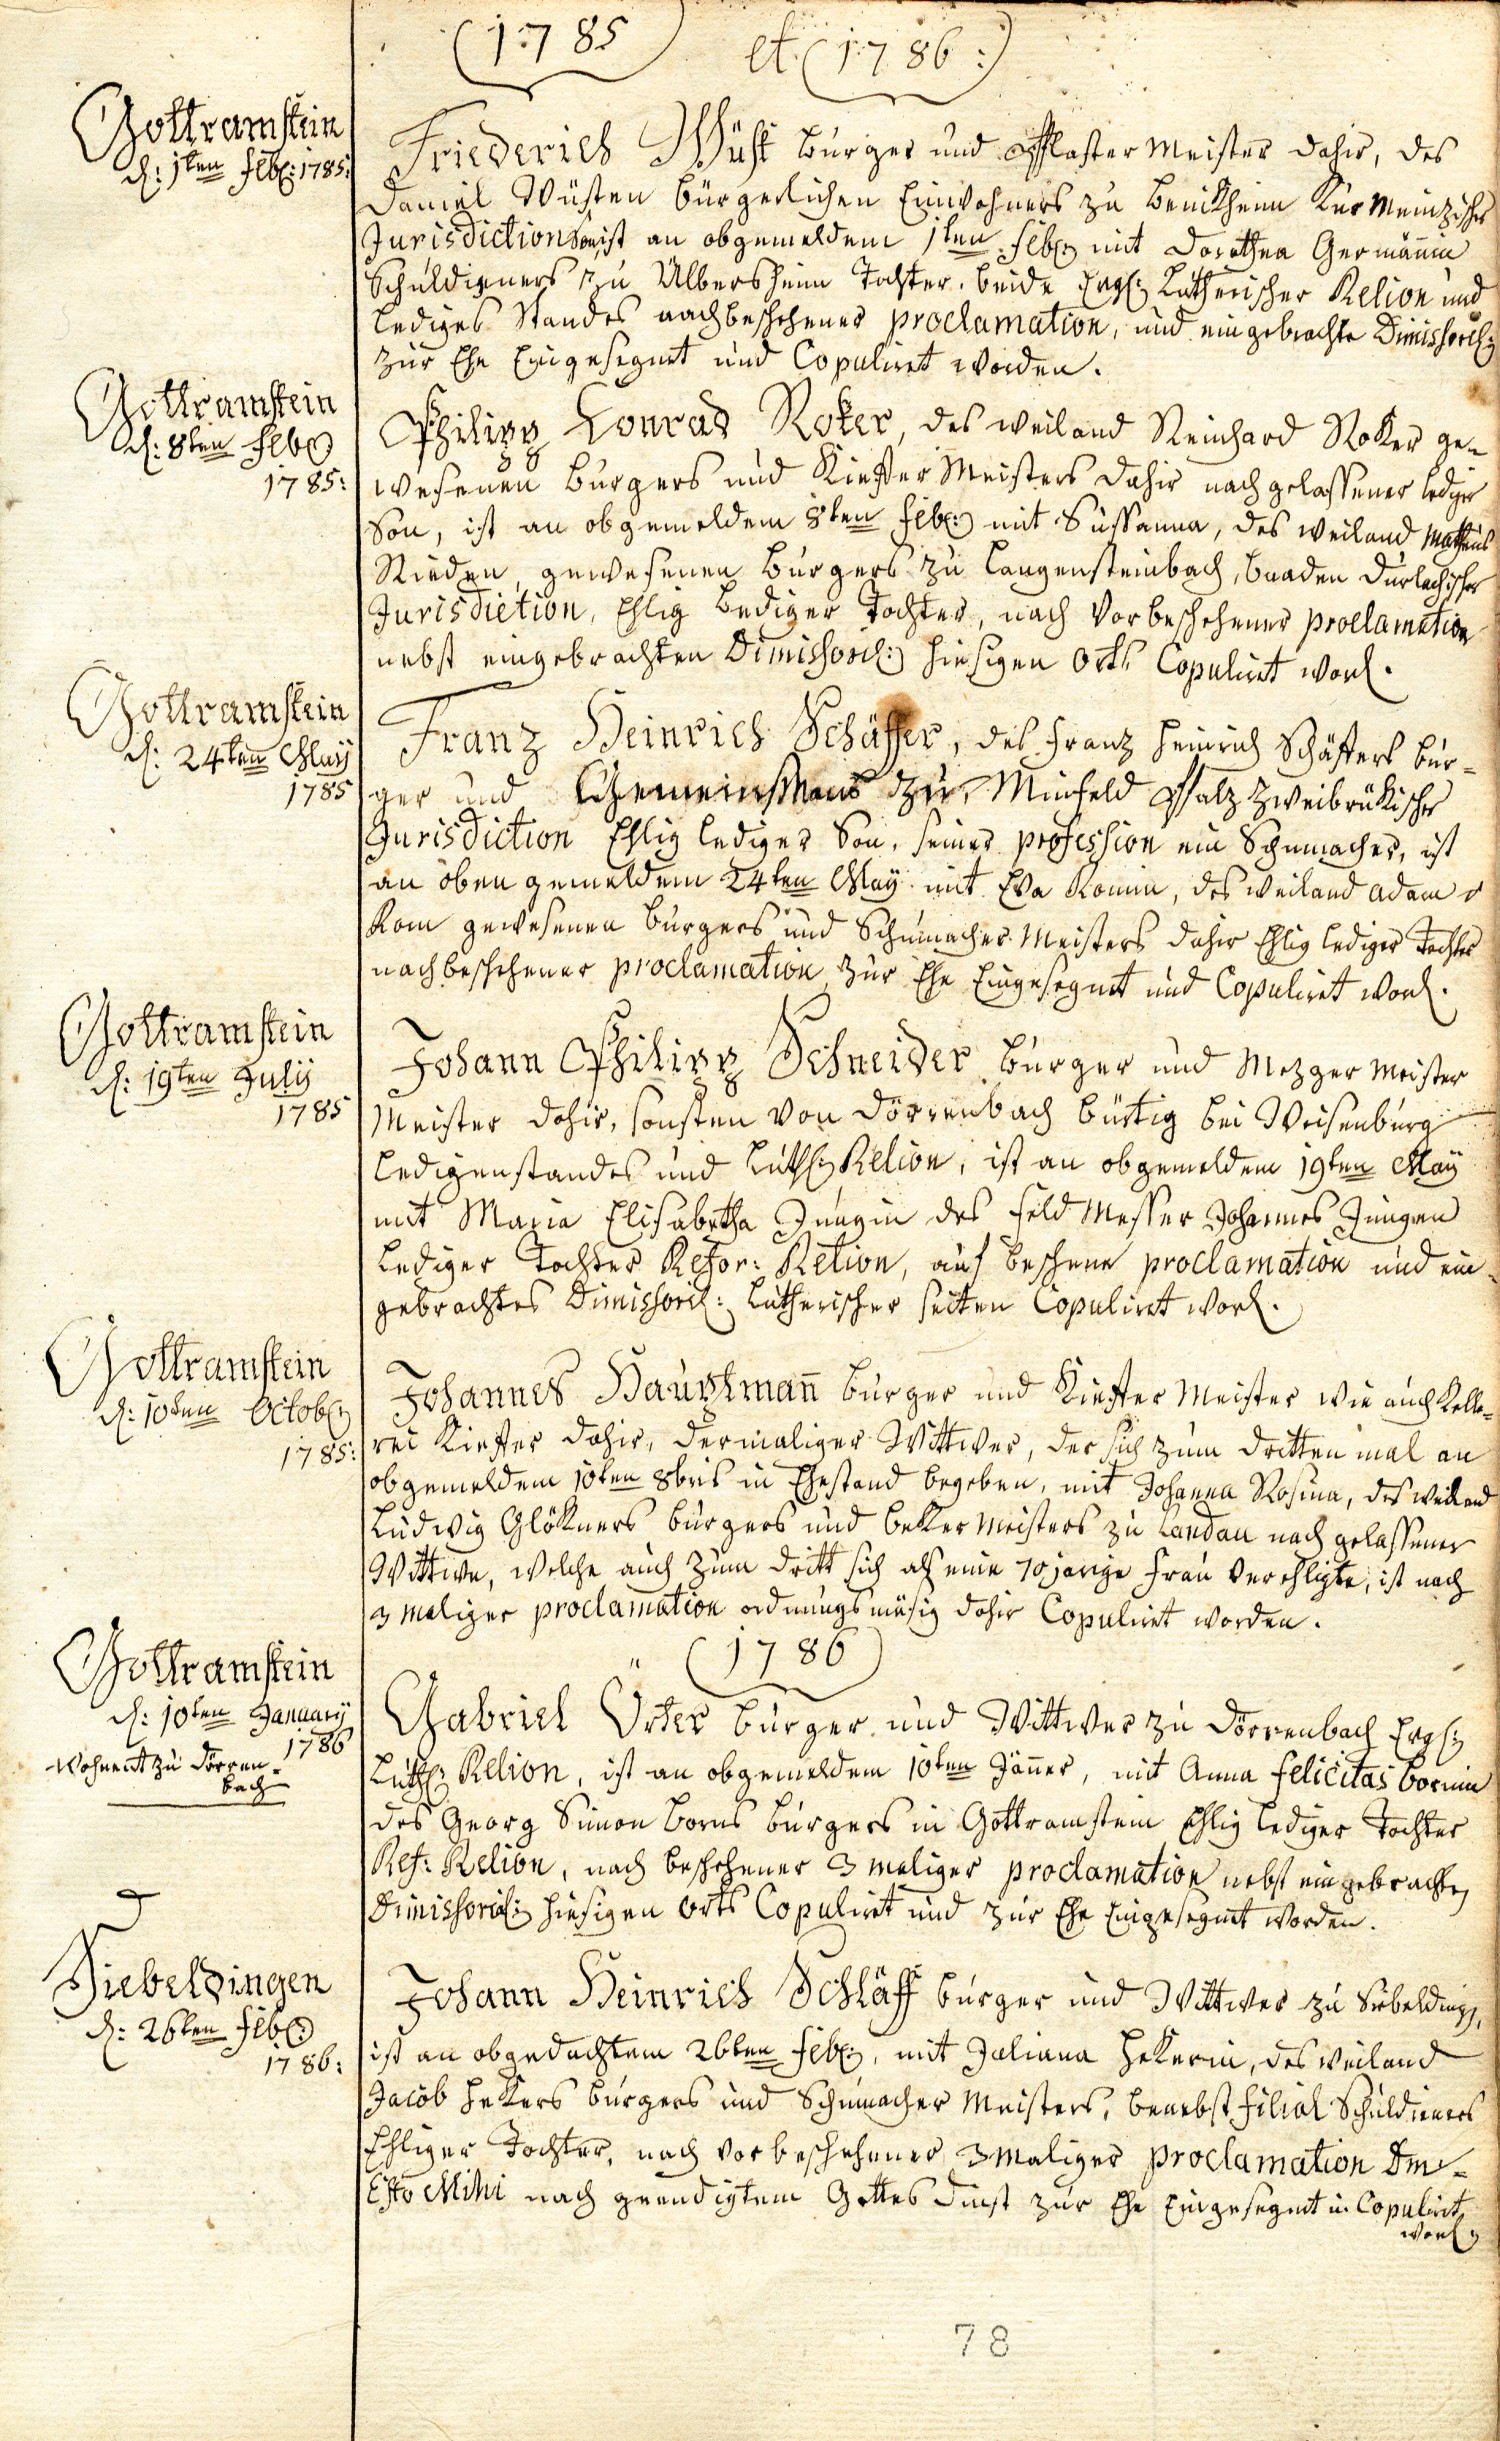 (1785) et (1786:)
Gottramstein
d: 1ten Feb: 1785:
Friederich Wüst burger und Pflaster Meister dahir, des
Daniel Wüsten bürgerlichen Einwohners zu Kur Meinzischer
Jurisdiction Son ist an obgemeldem 1ten Feb: mit Dorothea Germännin
Schuldieners zu Ülbersheim Tochter, beide Evgl: Lutherischer Relion und
lediges Standes nachbeschehener proclamation, und eingebrachte Dimissoril:
zur Ehe Eingesegnet und Copuliret worden.
Gottramstein
d: 8ten Feb:
1785:
Philipp Conrad Roker, des weiland Reinhard Roker ge-
wesenen burgers und Kieffer Meisters dahir nachgelassener lediger
Son, ist an obgemeldem 8ten Feb: mit Sussanna, des weiland Matheus
Rieden, gewesenen burgers zu Langensteinbach, baaden Durlachischer
Jurisdiction, Ehlig lediger Tochter, nach Vorbeschehener proclamation
nebst eingebrachten Dimissoril: hiesigen Orts Copuliret word.
Gottramstein
d: 24ten May
1785
Franz Heinrich Schäffer, des Franz Heinrich Schäffers bur-
ger und Gemeinsmans zu Minfeld Pfalz Zweibrükischer
Jurisdiction Ehlig lediger Son, seines profession ein Schumacher, ist
an oben gemeldem 24ten May mit Eva Romin, des weiland Adam
Rom gewesenen burgers und Schumacher Meisters dahir Ehlig lediger Tochter
nachbeschehener proclamation zur Ehe Eingesegnet und Copuliret word.
Gottramstein
d: 19ten July
1785
Johann Philipp Schneider burger und Mezger Meister
Meister dahir, sonsten von Dörrenbach bürtig bei Weisenburg
ledigenstandes und Luth: Relion, ist an obgemeldem 19ten May
mit Maria Elisabetha Jungin des Feld Messer Johannes Jungen
lediger Tochter Refor: Relion, auf beschene proclamation und ein-
gebrachtes Dimissoril: Lutherischer seiten Copuliret word.
Gottramstein
d: 10ten Octob:
1785:
Johannes Hauptmañ burger und Kieffer Meister wie auch Kelle-
rei Kieffer dahir, dermaliger Wittwer, der sich zum dritten mal an
obgemeldem 10ten 8bris in Ehestand begeben, mit Johanna Rosina, des weiland
Ludwig Glökners burgers und beker Meisters zu Landau nach gelassener
Wittwe, welche auch zum dritt sich als eine 70 jarige Frau Verehligte, ist nach
3 maliger proclamation ordnungsmäsig dahir Copuliret worden.
(1786)
Gottramstein
d: 10ten January
1786
wohnent zu Dörren-
bach
Gabriel Örter burger und Wittwer zu Dörrenbach Evgl:
Luth: Relion, ist an obgemeldem 10ten Jäner, mit Anna Felicitas Bornin
des Georg Simon Borns burgers in Gottramstein Ehlig lediger Tochter
Ref: Relion, nach beschehener 3 maliger proclamation nebst eingebrachten
Dimissoril: hiesigen Orts Copuliret und zur Ehe Eingesegnet worden.
Siebeldingen
d: 26ten Feb:
1786:
Johann Heinrich Schläff burger und Wittwer zu Siebelding,
ist an obgedachtem 26ten Feb:, mit Juliana Hekerin, des weiland
Jacob Hekers burgers und Schumacher Meisters, benebst Filial Schuldieners
Ehliger Tochter, nach vor beschehener 3 maliger proclamation Dm-
Esto Mihi nach geendigtem Gottes Dinst zur Ehe Eingesegnet u. Copuliret
word:
78